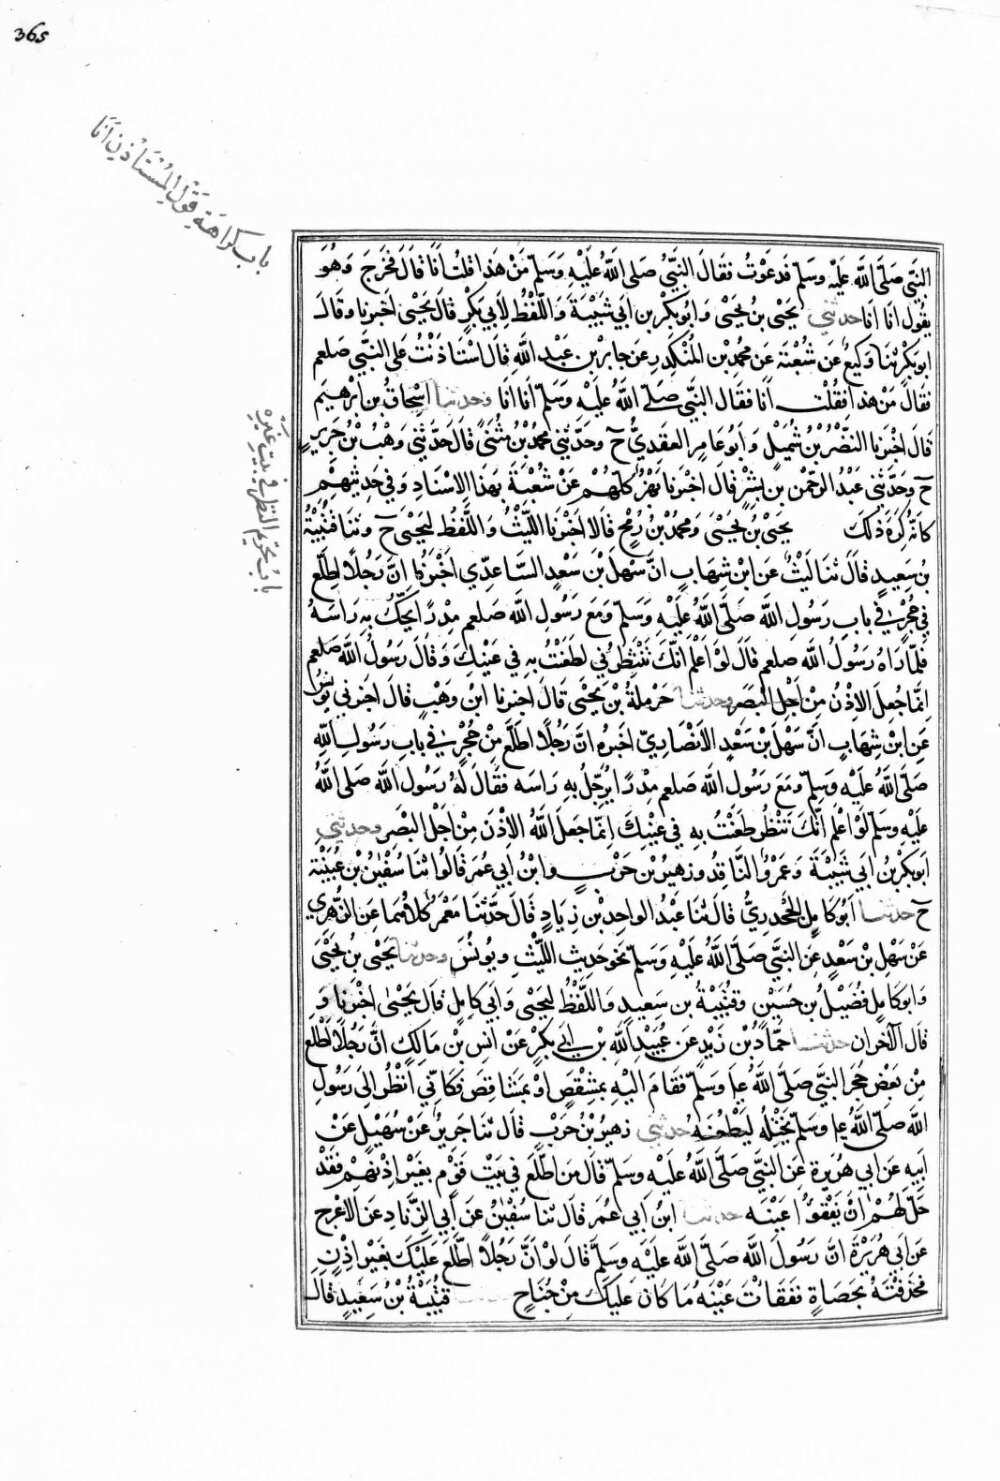 365
باب كراهة قول المستأذن أنا
باب تحريم النظر في بيت غيره
النبي صلى الله عليه وسلم فدعوت فقال النبي صلى الله عليه وسلم من هذا قلت انا قال فخرج وهو
يقول انا انا حدثني يحيى بن يحيى وابو بكر بن ابي شيبة واللفظ لابي بكر قال يحيى اخبرنا وقال
ابو بكر ثنا وكيع عن شعبة عن محمد بن المنكدر عن جابر بن عبد الله قال استاذنت على النبي صلعم
فقال من هذا فقلت انا فقال النبي صلى الله عليه وسلم انا انا وحدثنا اسحاق بن ابرهيم
قال اخبرنا النضر بن شميل وابو عامر العقدي ح وحدثني محمد بن مثنى قال حدثني وهب بن جرير
ح وحدثني عبد الرحمن بن بشر قال اخبرنا بهز كلهم عن شعبة بهذا الاسناد وفي حديثهم
كانه كره ذلك يحيى بن يحيى ومحمد بن رمح قالا اخبرنا الليث واللفظ ليحيى ح وثنا قتيبة
بن سعيد قال ثنا ليث عن ابن شهاب ان سهل بن سعد الساعدي اخبره ان رجلا اطلع
في جحر في باب رسول الله صلى الله عليه وسلم ومع رسول الله صلعم مدرا يحك به راسه
فلما راه رسول الله صلعم قال لو اعلم انك تنتظرني لطعنت به في عينك وقال رسول الله صلعم
انما جعل الاذن من اجل البصر وحدثنا حرملة بن يحيى قال اخبرنا ابن وهب قال اخبرني يونس
عن ابن شهاب ان سهل بن سعد الانصاري اخبره ان رجلا اطلع من جحر في باب رسول الله
صلى الله عليه وسلم ومع رسول الله صلعم مدرا يرجل به راسه فقال له رسول الله صلى الله
عليه وسلم لو اعلم انك تنتظر طعنت به في عينك انما جعل الله الاذن من اجل البصر وحدثني
ابو بكر بن ابي شيبة وعمرو الناقد وزهير بن حرب وابن ابي عمر قالوا ثنا سفين بن عيينة
ح حدثنا ابو كامل الجحدري قال ثنا عبد الواحد بن زياد قال حدثنا معمر كلاهما عن الزهري
عن سهل بن سعد عن النبي صلى الله عليه وسلم نحو حديث الليث ويونس وحدثنا يحيى بن يحيى
وابو كامل فضيل بن حسين وقتيبة بن سعيد واللفظ ليحيى وابي كامل قال يحيى اخبرنا و
قال الآخران حدثنا حماد بن زيد عن عبيد الله بن ابي بكر عن انس بن مالك ان رجلا اطلع
من بعض حجر النبي صلى الله عليه وسلم فقام اليه بمشقص او بمشاقص فكاني انظر الى رسول
الله صلى الله عليه وسلم يختله ليطعنه حدثني زهير بن حرب قال ثنا جرير عن سهيل عن
ابيه عن ابي هريرة عن النبي صلى الله عليه وسلم قال من اطلع في بيت قوم بغير اذنهم فقد
حل لهم ان يفقؤا عينه حدثنا ابن ابي عمر قال ثنا سفين عن ابي الزناد عن الاعرج
عن ابي هريرة ان رسول الله صلى الله عليه وسلم قال لو ان رجلا اطلع عليك بغير اذن
فخذفته بحصاة نفقات عينه ما كان عليك من جناح قتيبة بن سعيد قال